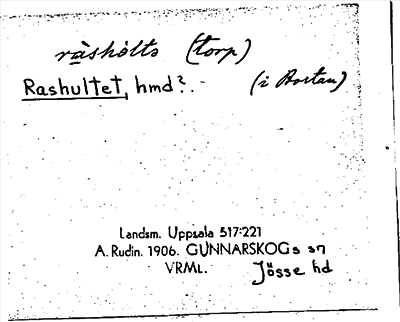 råshólts (torp)
Rashultet, hmd?. (i Bortan)
Landsm. Uppsala 517:221
A. Rudin. 1906. GUNNARSKOGs sn
VRML. Jösse hd